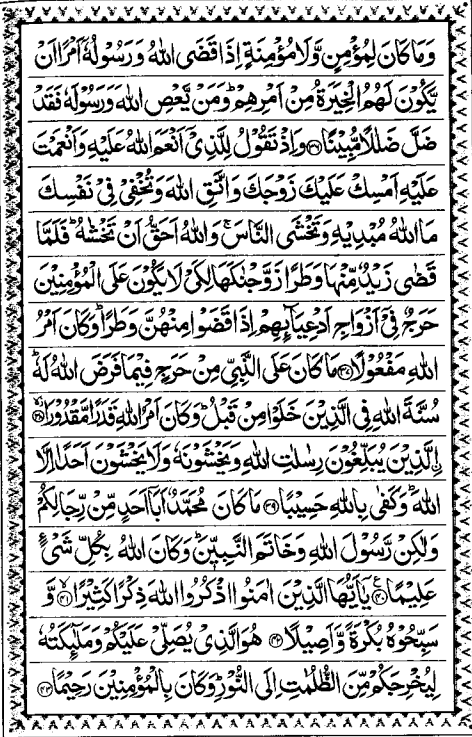 وَمَا كَانَ لِمُؤْمِنٍ وَّلَا مُؤْمِنَةٍ اِذَا قَضَى اللهُ وَرَسُوْلُهٗۤ اَمْرًا اَنْ
يَّكُوْنَ لَهُمُ الْخِيَرَةُ مِنْ اَمْرِهِمْ ؕ وَمَنْ يَّعْصِ اللهَ وَرَسُوْلَهٗ فَقَدْ
ضَلَّ ضَلٰلًا مُّبِيْنًا ﴿۳۶﴾ وَاِذْ تَقُوْلُ لِلَّذِيْۤ اَنْعَمَ اللهُ عَلَيْهِ وَاَنْعَمْتَ
عَلَيْهِ اَمْسِكْ عَلَيْكَ زَوْجَكَ وَاتَّقِ اللهَ وَتُخْفِيْ فِيْ نَفْسِكَ
مَا اللهُ مُبْدِيْهِ وَتَخْشَى النَّاسَ ۚ وَاللهُ اَحَقُّ اَنْ تَخْشٰىهُ ؕ فَلَمَّا
قَضٰى زَيْدٌ مِّنْهَا وَطَرًا زَوَّجْنٰكَهَا لِكَيْ لَا يَكُوْنَ عَلَى الْمُؤْمِنِيْنَ
حَرَجٌ فِيْۤ اَزْوَاجِ اَدْعِيَآئِهِمْ اِذَا قَضَوْا مِنْهُنَّ وَطَرًا ؕ وَكَانَ اَمْرُ
اللهِ مَفْعُوْلًا ﴿۳۷﴾ مَا كَانَ عَلَى النَّبِيِّ مِنْ حَرَجٍ فِيْمَا فَرَضَ اللهُ لَهٗ ؕ
سُنَّةَ اللهِ فِي الَّذِيْنَ خَلَوْا مِنْ قَبْلُ ؕ وَكَانَ اَمْرُ اللهِ قَدَرًا مَّقْدُوْرًا ﴿۳۸﴾
اِلَّذِيْنَ يُبَلِّغُوْنَ رِسٰلٰتِ اللهِ وَيَخْشَوْنَهٗ وَلَا يَخْشَوْنَ اَحَدًا اِلَّا
اللهَ ؕ وَكَفٰى بِاللهِ حَسِيْبًا ﴿۳۹﴾ مَا كَانَ مُحَمَّدٌ اَبَاۤ اَحَدٍ مِّنْ رِّجَالِكُمْ
وَلٰكِنْ رَّسُوْلَ اللهِ وَخَاتَمَ النَّبِيّٖنَ ؕ وَكَانَ اللهُ بِكُلِّ شَيْءٍ
عَلِيْمًا ﴿۴۰﴾ ع يٰۤاَيُّهَا الَّذِيْنَ اٰمَنُوا اذْكُرُوا اللهَ ذِكْرًا كَثِيْرًا ﴿۴۱﴾ وَّ
سَبِّحُوْهُ بُكْرَةً وَّاَصِيْلًا ﴿۴۲﴾ هُوَ الَّذِيْ يُصَلِّيْ عَلَيْكُمْ وَمَلٰٓئِكَتُهٗ
لِيُخْرِجَكُمْ مِّنَ الظُّلُمٰتِ اِلَى النُّوْرِ ؕ وَكَانَ بِالْمُؤْمِنِيْنَ رَحِيْمًا ﴿۴۳﴾